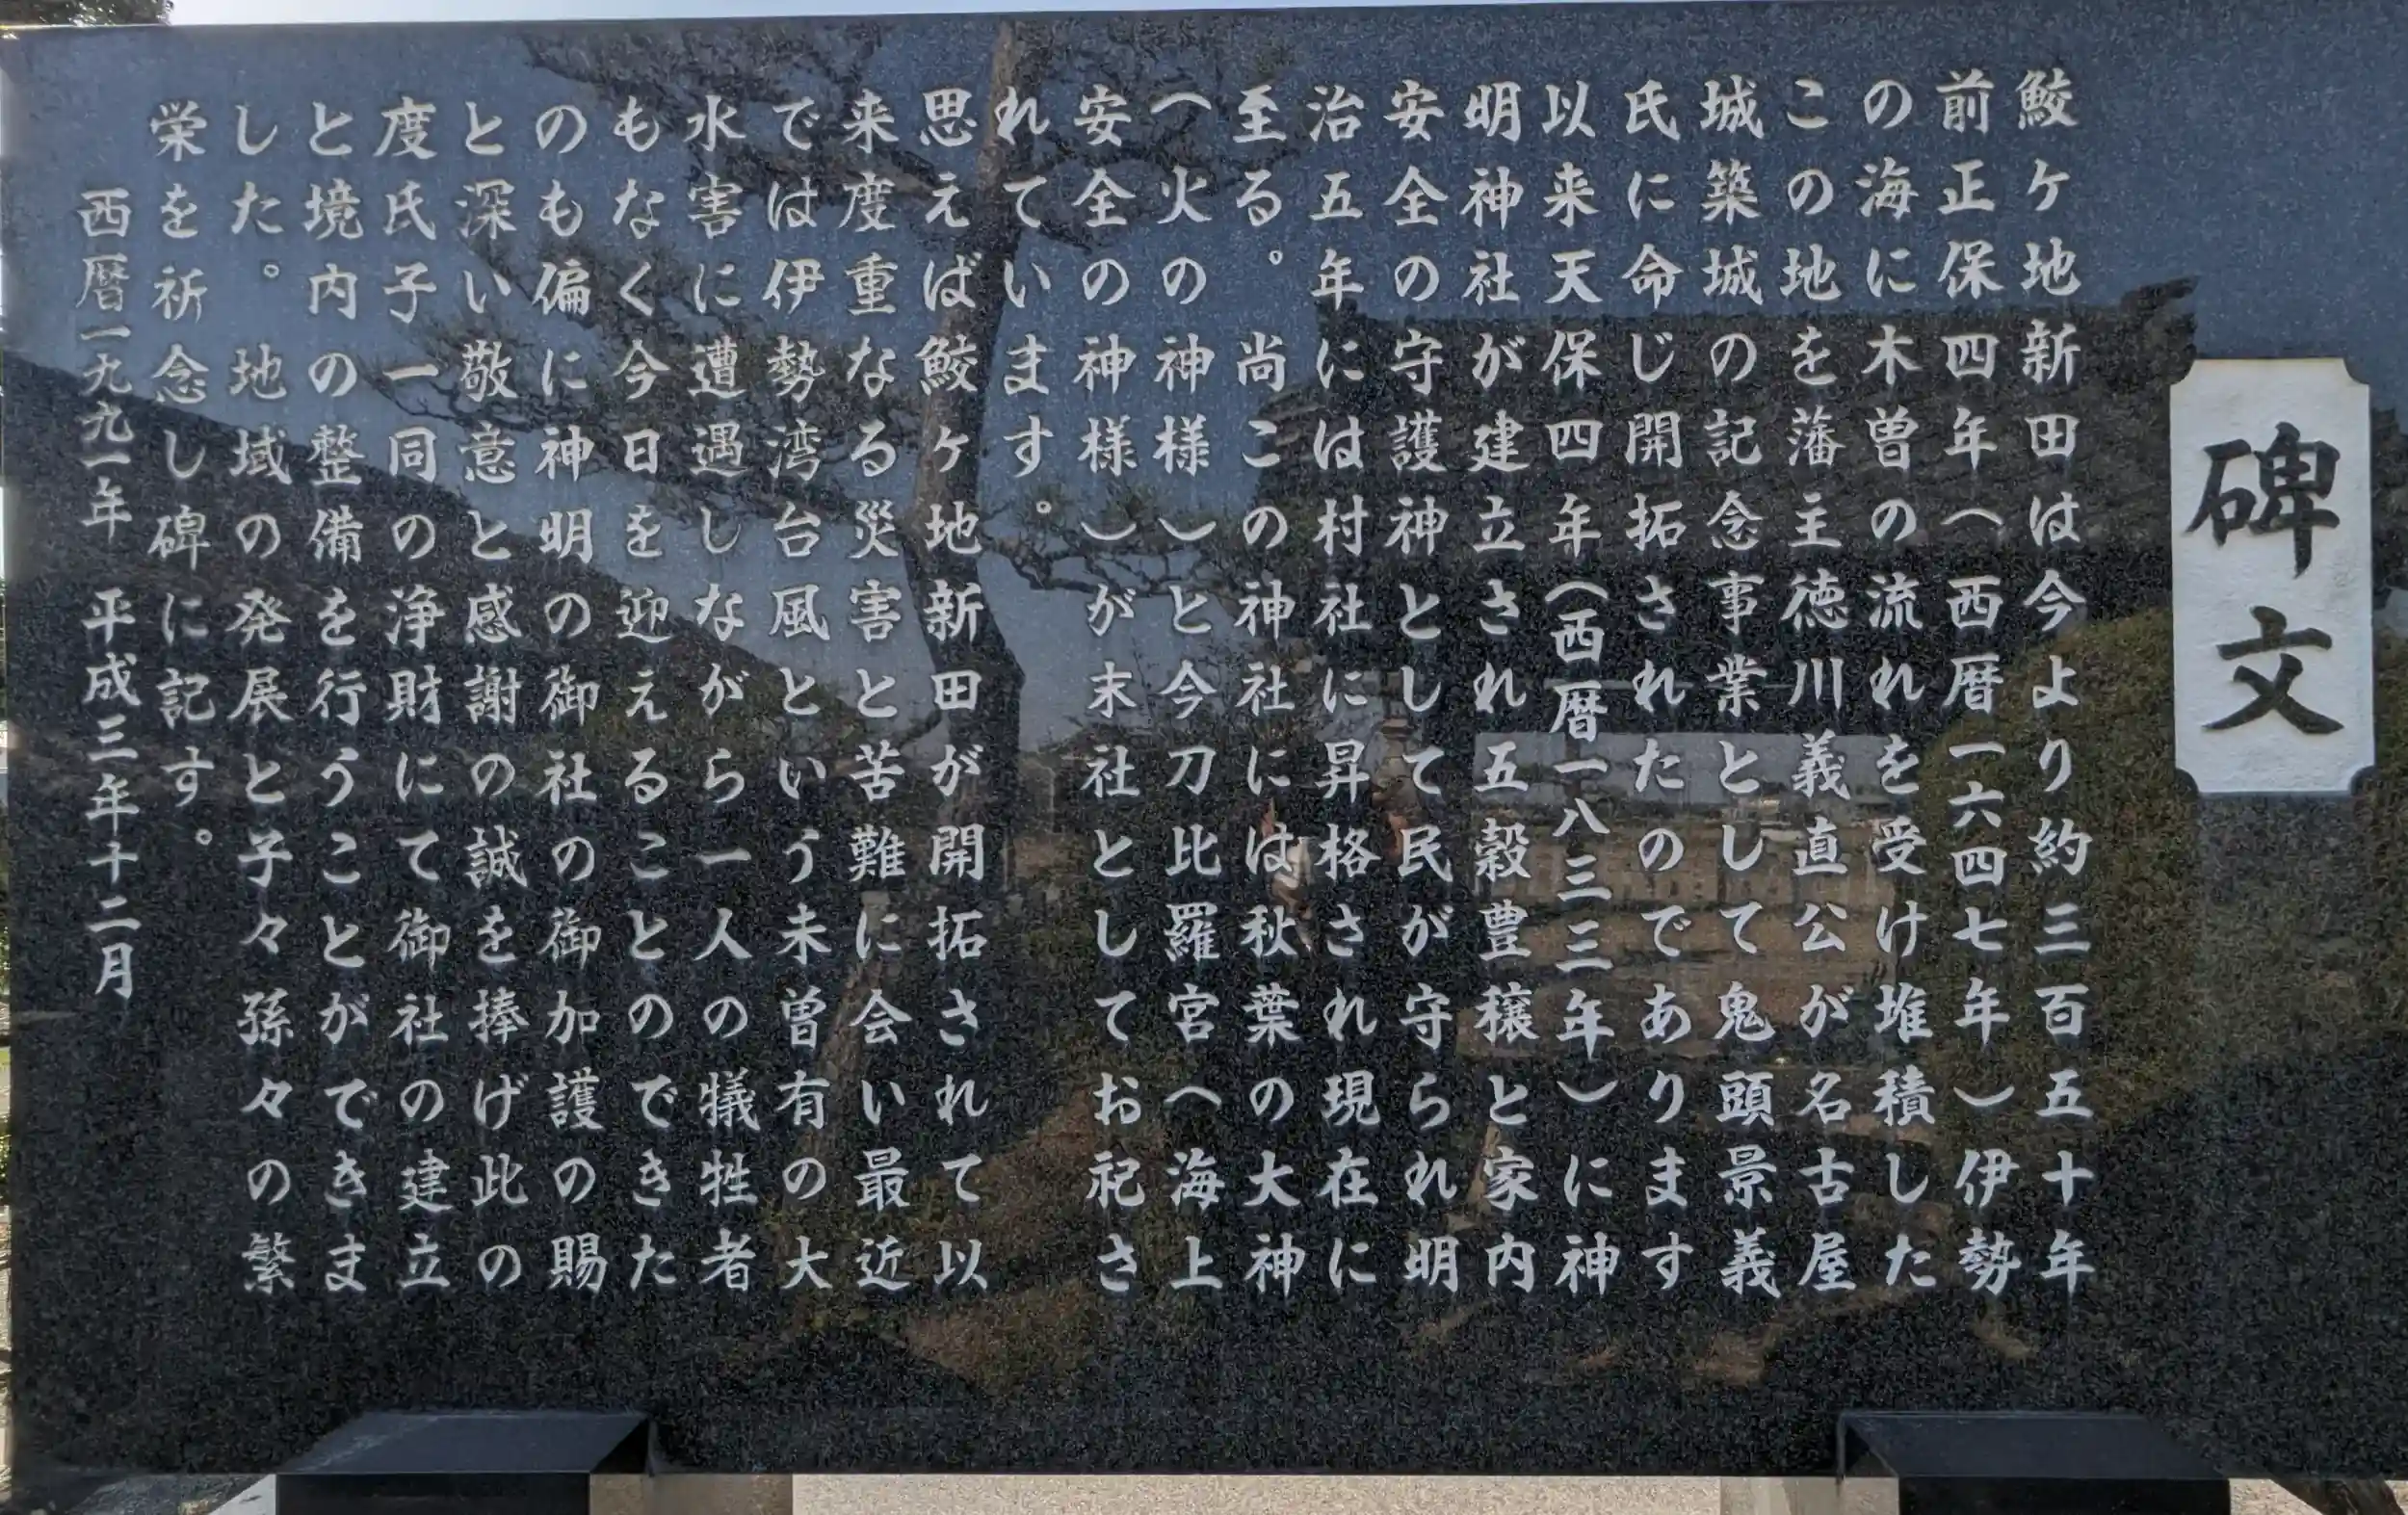 碑文
鮫ケ地新田は今より約三百五十年
前正保四年（西暦一六四七年）伊勢
の海に木曽の流れを受け堆積した
この地を藩主徳川義直公が名古屋
城築城の記念事業として鬼頭景義
氏に命じ開拓されたのであります
以来天保四年（西暦一八三三年）に神
明神社が建立され五穀豊穣と家内
安全の守護神として民が守られ明
治五年には村社に昇格され現在に
至る。　尚この神社には秋葉の大神
（火の神様）と今刀比羅宮（海上
安全の神様）が末社としてお祀さ
れています。
思えば鮫ヶ地新田が開拓されて以
来度重なる災害と苦難に会い最近
では伊勢湾台風という未曽有の大
水害に遭遇しながら一人の犠牲者
もなく今日を迎えることのできた
のも偏に神明の御社の御加護の賜
と深い敬意と感謝の誠を捧げ此の
度氏子一同の浄財にて御社の建立
と境内の整備を行うことができま
した。地域の発展と子々孫々の繁
栄を祈念し碑に記す。
西暦一九九一年　平成三年十二月